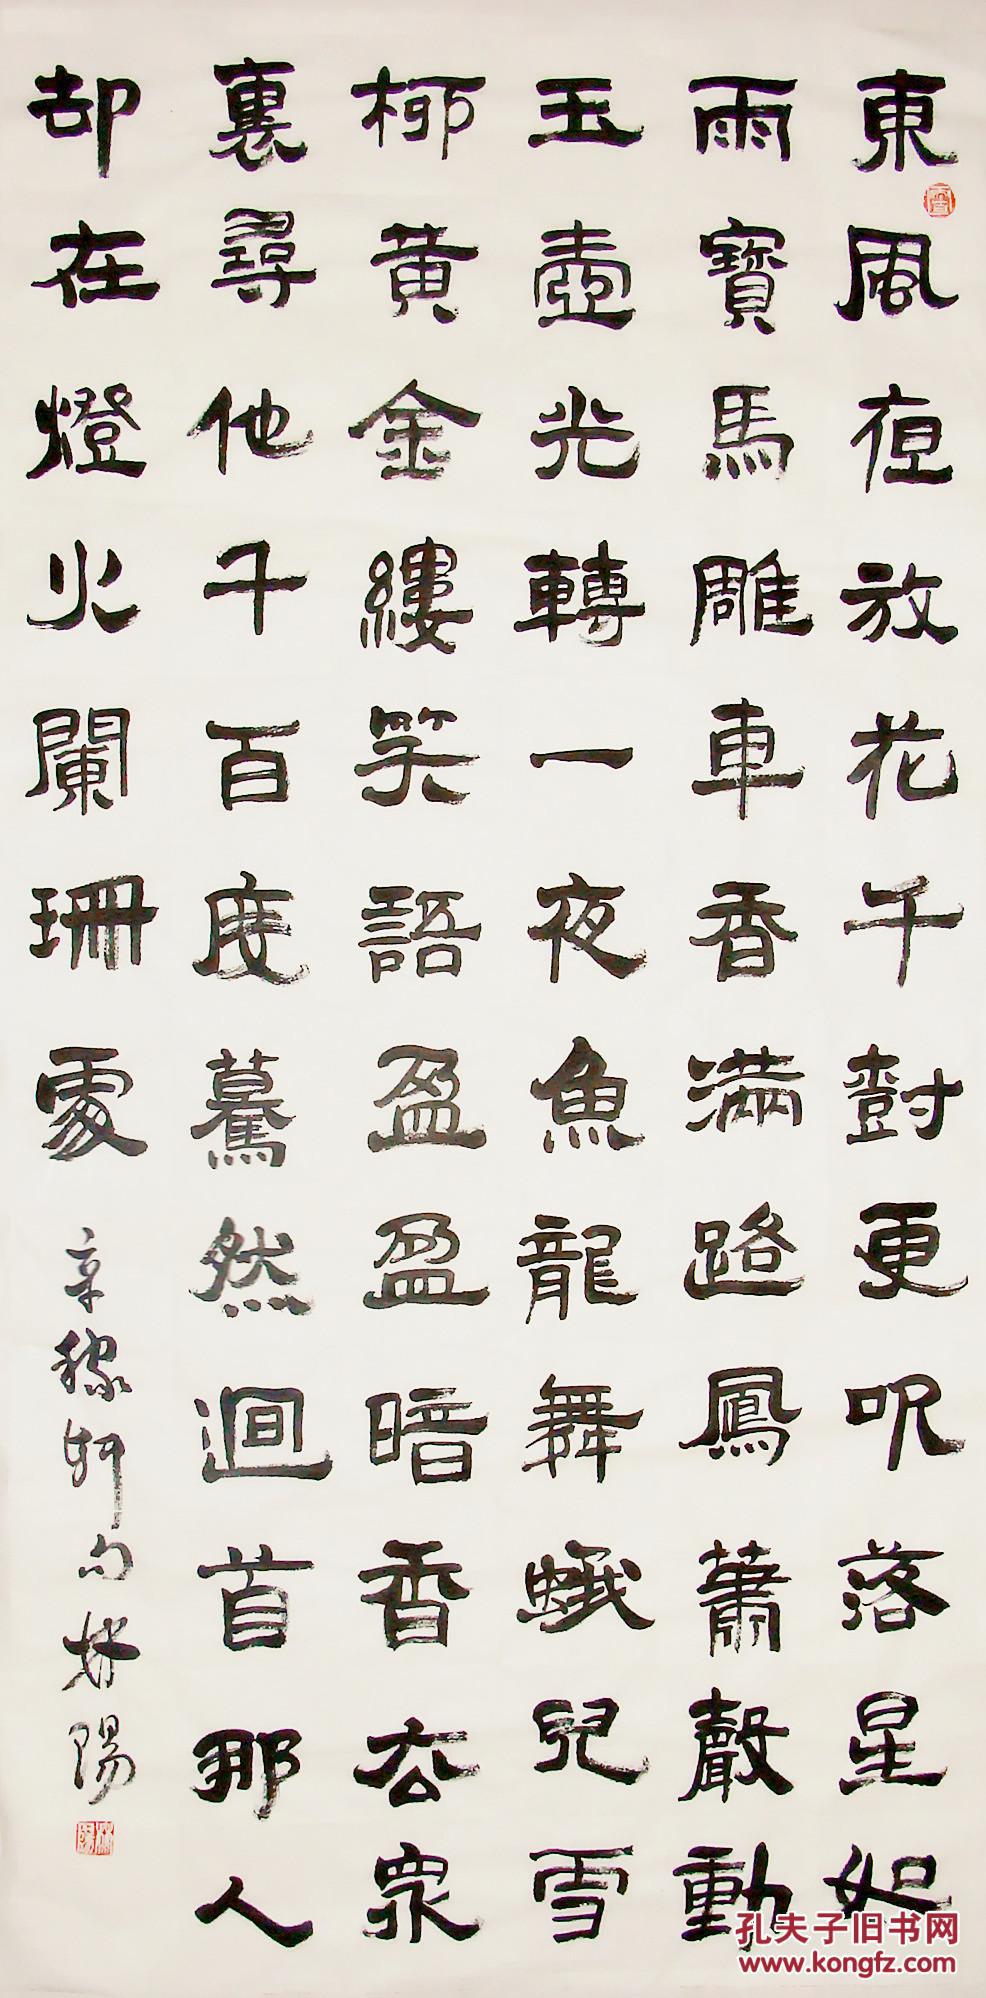 東風亱放花千尌更吹落星如
雨寶馬雕車香滿路鳳蕭聲動
玉壺光轉一夜魚龍舞蛾兒雪
柳黄金縷笑語盈盈暗香去衆
裏尋他千百度驀然迴首那人
却在燈火闌珊處
辛稼軒句 陽
孔夫子旧书网
www.kongfz.com